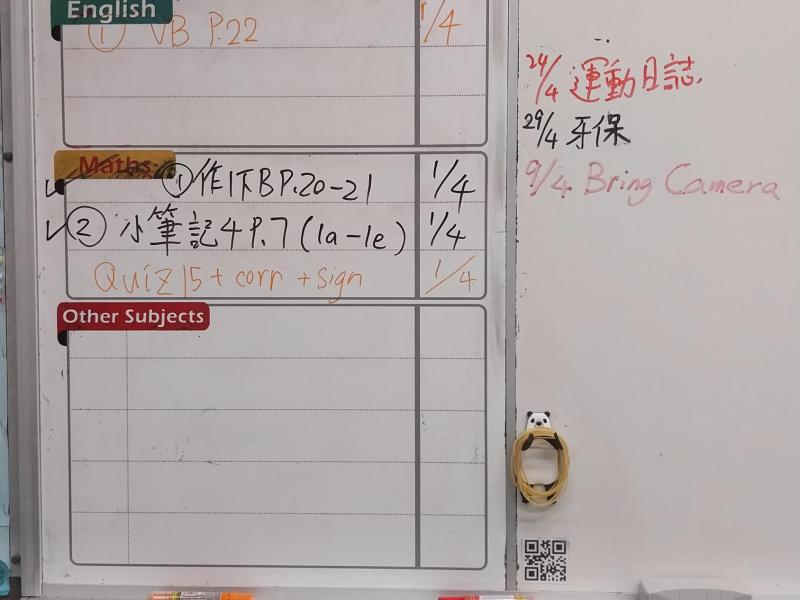 English
① VB P.22 1/4
Maths
① 作下B P.20-21 1/4
② 小筆記4 P.7 (1a-1e) 1/4
Quiz 15 + corr + sign 1/4
Other Subjects
24/4 運動日誌
29/4 牙保
9/4 Bring Camera